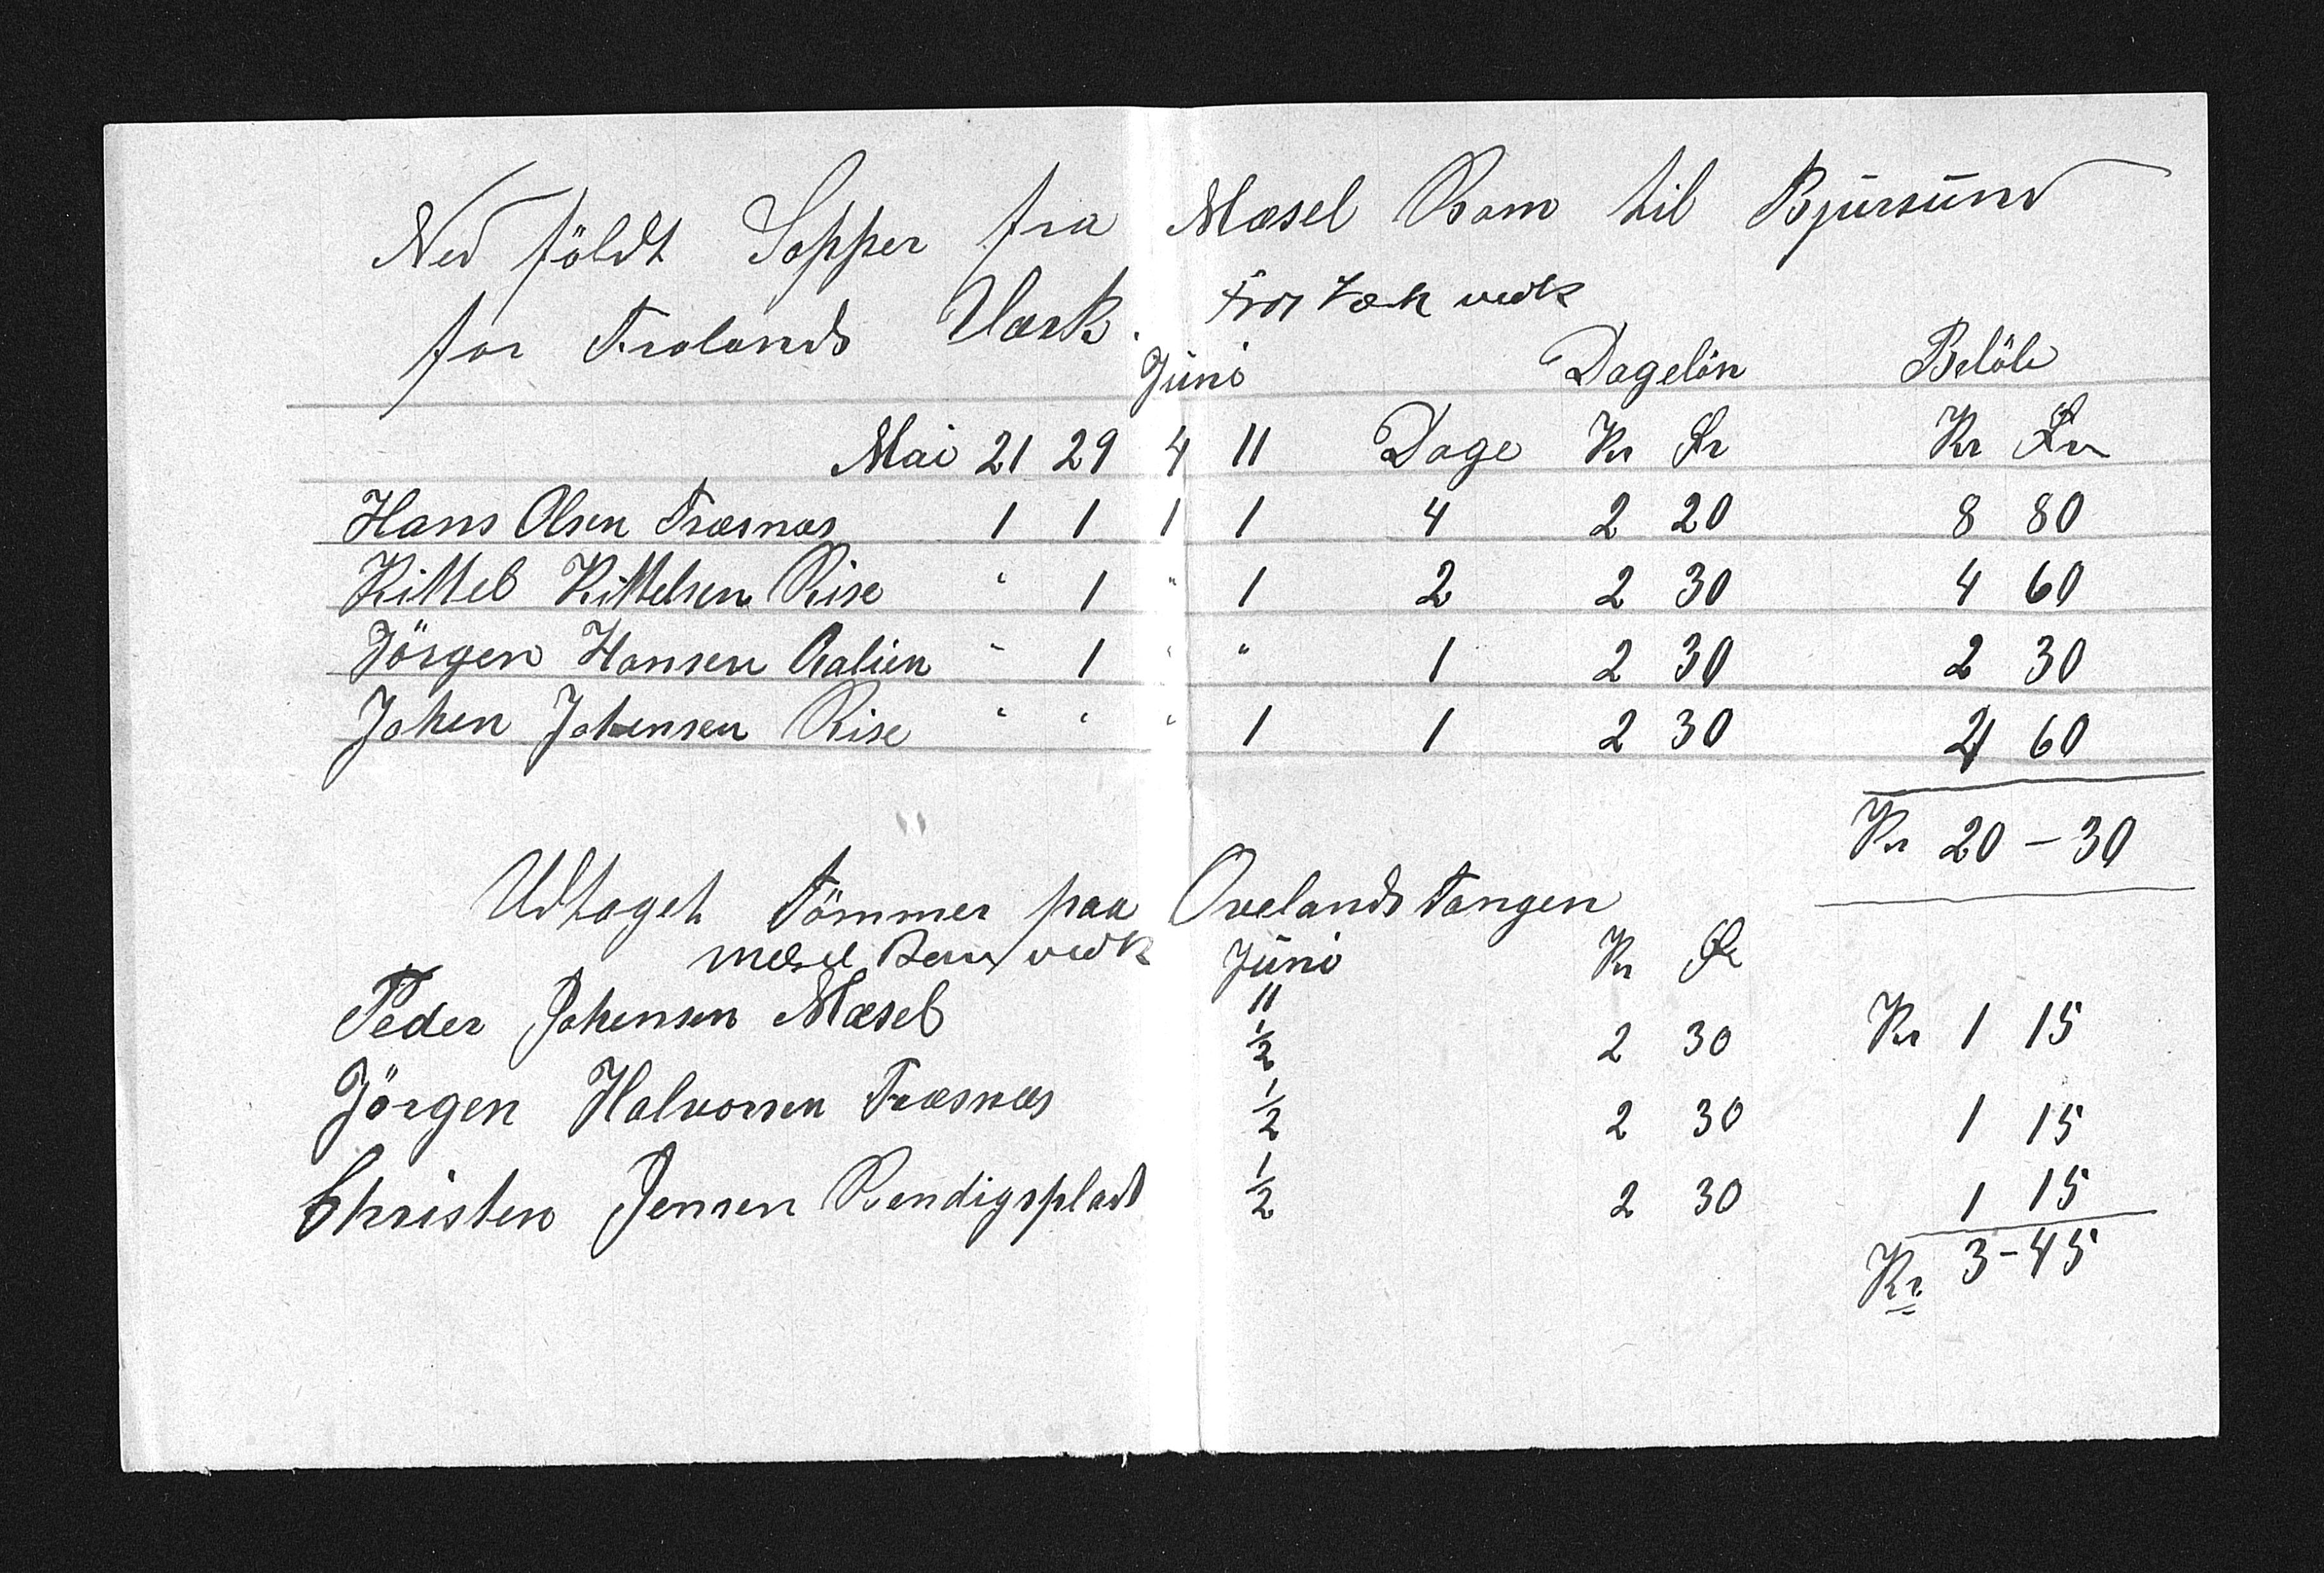 Ned földt Sopper fra Mæsel Bom til Bjursund
for Frolands Værk. vedk
Juni Dagelön Belöb
Mai 21 29 4 11 Dage Kr Ør Kr Ør
Hans Olsen Træsnæs 1 1 1 1 4 2 20 8 80
Kittel Kittelsen Rise " 1 " 1 2 2 30 4 60
Jörgen Hansen Aalien " 1 " " 1 2 30 2 30
Johen Johensen Rise " " " 1 1 2 30 4 60
Kr 20 - 30
Udtaget Tömmer paa Ovelands Tangen
Mæsel Bom vedk Juni Kr Ør
11
Peder Johensen Mæsel 1/2 2 30 Kr 1 15
Jörgen Halvorsen Træsnæs 1/2 2 30 1 15
Christen Jensen Bendigsplads 1/2 2 30 1 15
Kr. 3 - 45